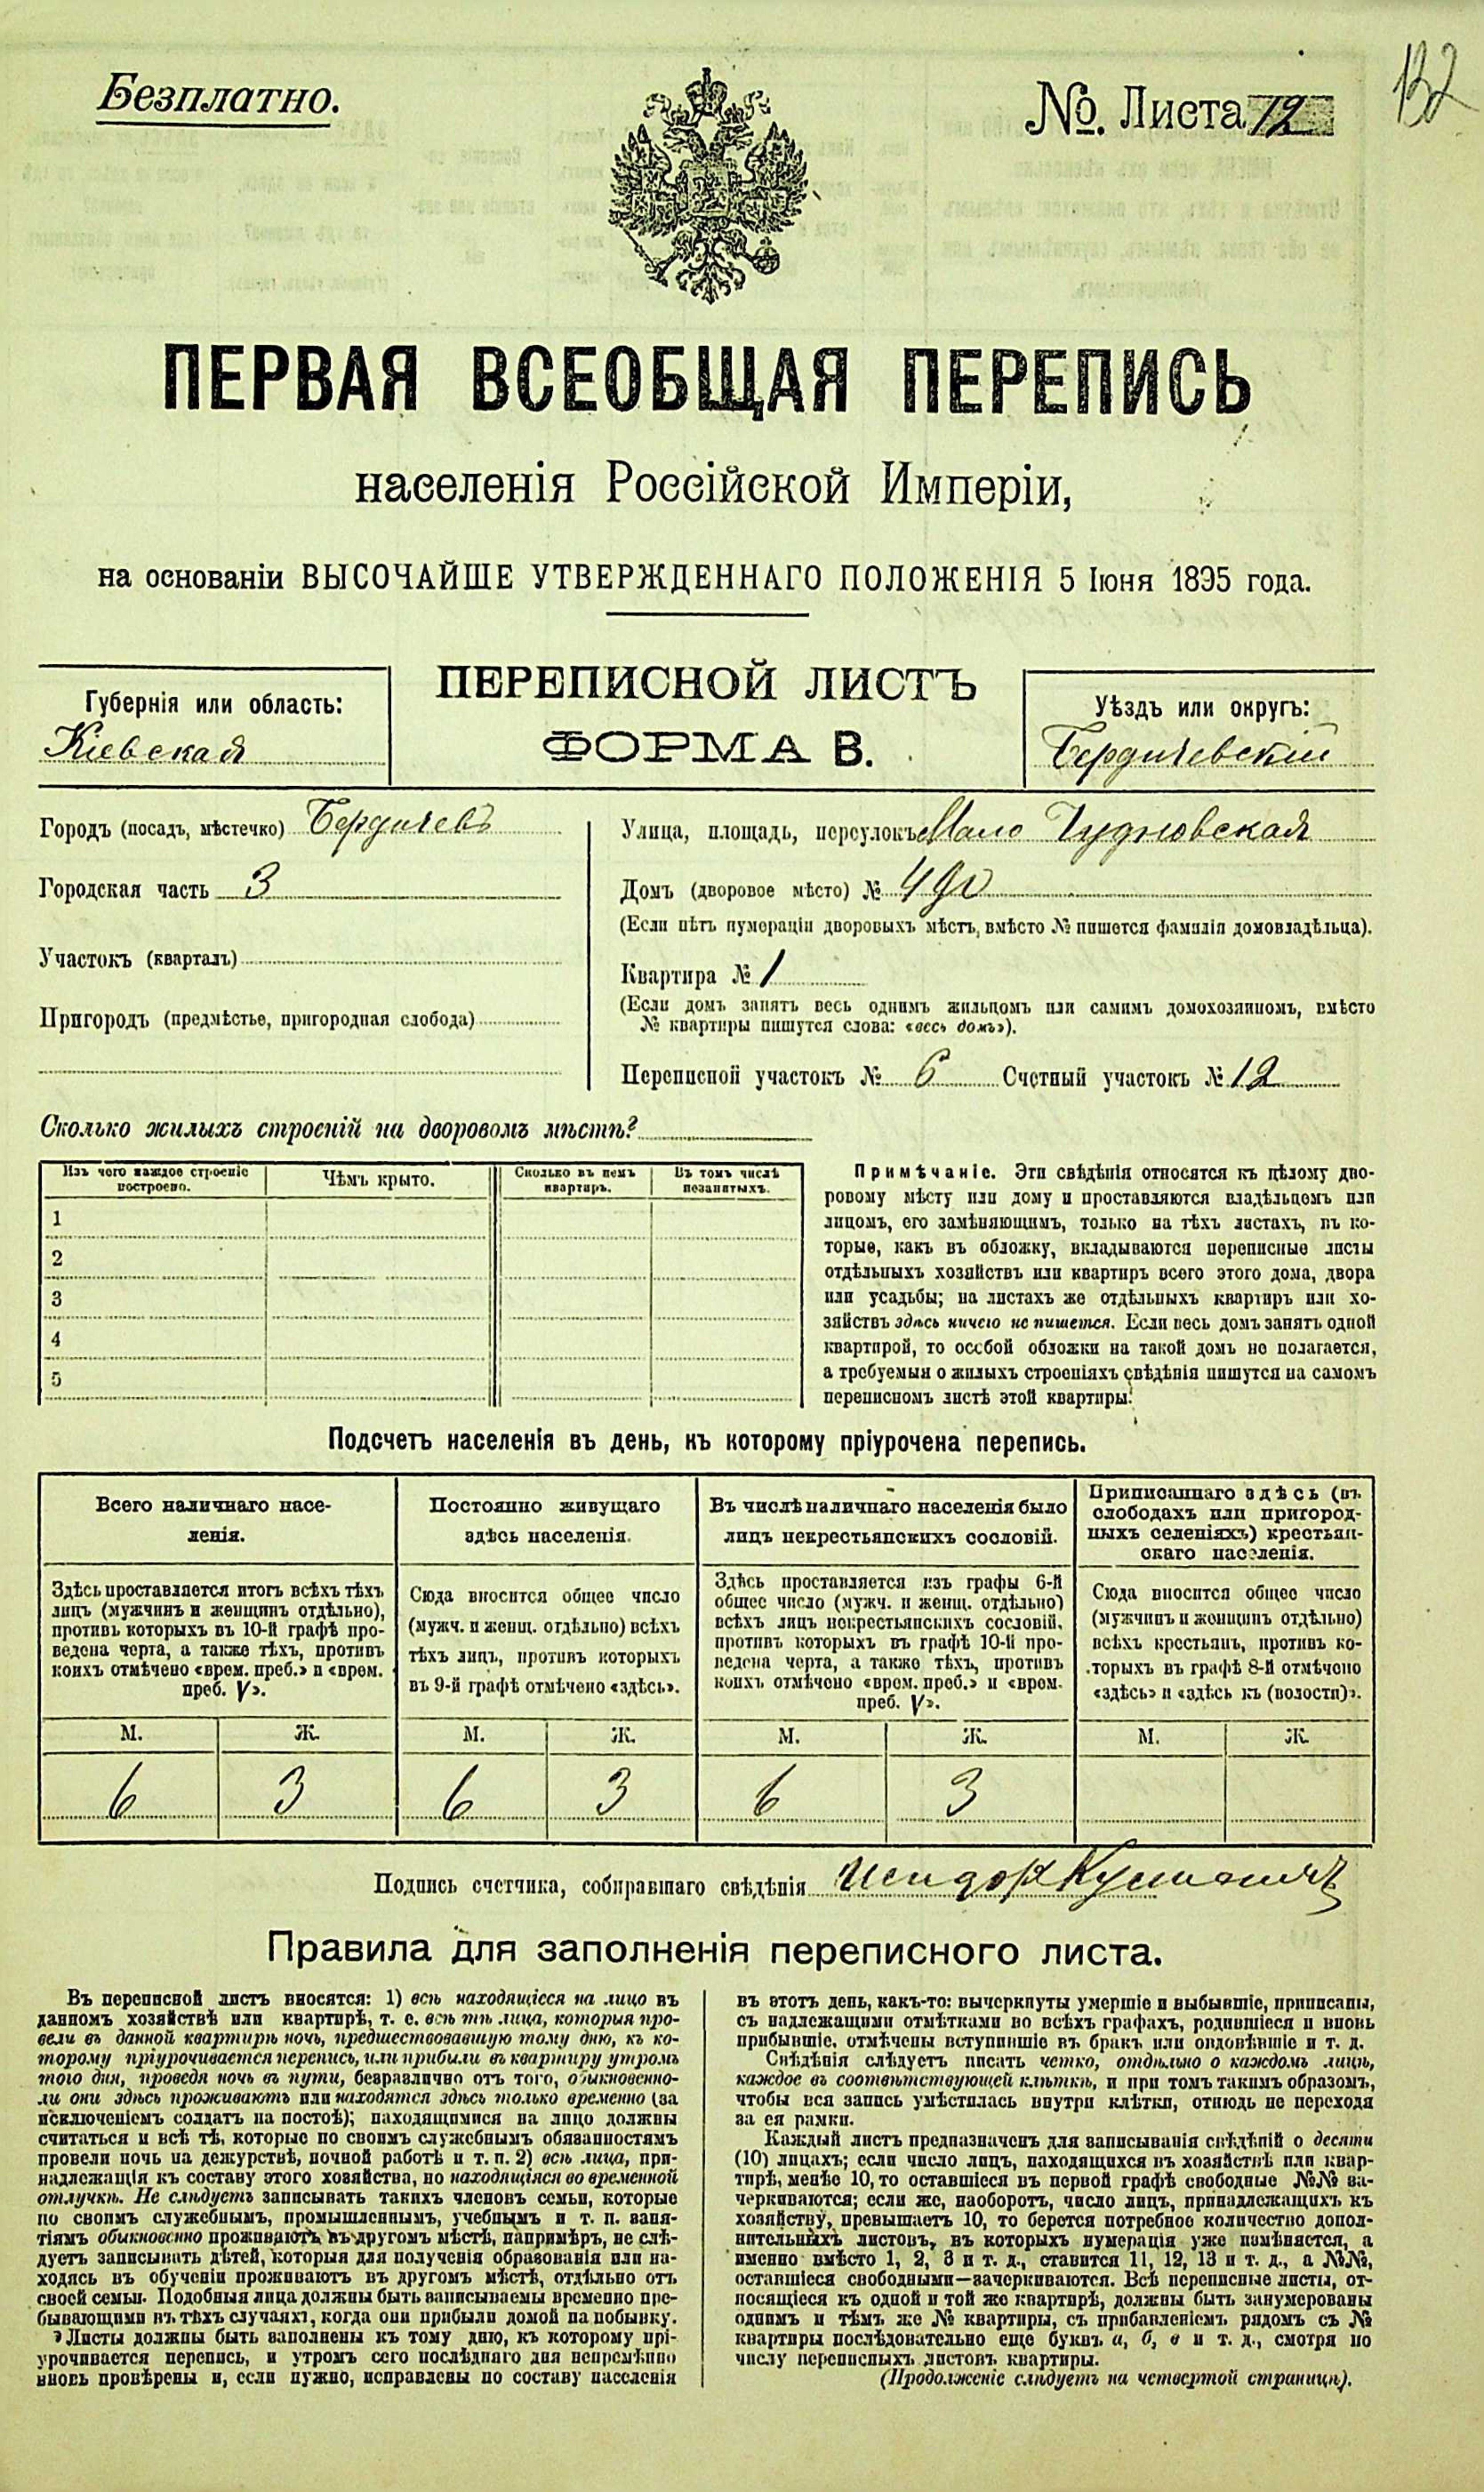 Безплатно.
№. Листа 12
132
ПЕРВАЯ ВСЕОБЩАЯ ПЕРЕПИСЬ
населенія Россійской Имперіи,
на основаніи ВЫСОЧАЙШЕ УТВЕРЖДЕННАГО ПОЛОЖЕНІЯ 5 Іюня 1895 года.
ПЕРЕПИСНОЙ ЛИСТЪ
ФОРМА В.
Губернія или область:
Кіевская
Уѣздъ или округъ:
Бердичевскій
Городъ (посадъ, мѣстечко) Бердичевъ
Городская часть 3
Участокъ (кварталъ)
Пригородъ (предмѣстье, пригородная слобода)
Улица, площадь, переулокъ Мало Чудновская
Домъ (дворовое мѣсто) №
(Если нѣтъ нумераціи дворовыхъ мѣстъ, вмѣсто № пишется фамилія домовладѣльца).
Квартира № 1
(Если домъ занятъ весь однимъ жильцомъ или самимъ домохозяиномъ, вмѣсто
№ квартиры пишутся слова: «весь домъ»).
Переписной участокъ № 6 Счетный участокъ № 12
Сколько жилыхъ строеній на дворовомъ мѣстѣ?
Изъ чего каждое строеніе
построено.
Чѣмъ крыто.
Сколько въ немъ
квартиръ.
Въ томъ числѣ
незанятыхъ.
1
2
3
4
5
Примѣчаніе. Эти свѣдѣнія относятся къ цѣлому дво-
ровому мѣсту или дому и проставляются владѣльцемъ или
лицомъ, его замѣняющимъ, только на тѣхъ листахъ, въ ко-
торые, какъ въ обложку, вкладываются переписные листы
отдѣльныхъ хозяйствъ или квартиръ всего этого дома, двора
или усадьбы; на листахъ же отдѣльныхъ квартиръ или хо-
зяйствъ здѣсь ничего не пишется. Если весь домъ занятъ одной
квартирой, то особой обложки на такой домъ не полагается,
а требуемыя о жилыхъ строеніяхъ свѣдѣнія пишутся на самомъ
переписномъ листѣ этой квартиры.
Подсчетъ населенія въ день, къ которому пріурочена перепись.
Всего наличнаго насе-
ленія.
Постоянно живущаго
здѣсь населенія.
Въ числѣ наличнаго населенія было
лицъ некрестьянскихъ сословій.
Приписаннаго здѣсь (въ
слободахъ или пригород-
ныхъ селеніяхъ) крестьян-
скаго населенія.
Здѣсь проставляется итогъ всѣхъ тѣхъ
лицъ (мужчинъ и женщинъ отдѣльно),
противъ которыхъ въ 10-й графѣ про-
ведена черта, а также тѣхъ, противъ
коихъ отмѣчено «врем. преб.» и «врем.
преб. V».
Сюда вносится общее число
(мужч. и женщ. отдѣльно) всѣхъ
тѣхъ лицъ, противъ которыхъ
въ 9-й графѣ отмѣчено «здѣсь».
Здѣсь проставляется изъ графы 6-й
общее число (мужч. и женщ. отдѣльно)
всѣхъ лицъ некрестьянскихъ сословій,
противъ которыхъ въ графѣ 10-й про-
ведена черта, а также тѣхъ, противъ
коихъ отмѣчено «врем. преб.» и «врем.
преб. V».
Сюда вносится общее число
(мужчинъ и женщинъ отдѣльно)
всѣхъ крестьянъ, противъ ко-
торыхъ въ графѣ 8-й отмѣчено
«здѣсь» и «здѣсь къ (волости)».
М. Ж. М. Ж. М. Ж. М. Ж.
6 3 6 3 6 3
Подпись счетчика, собиравшаго свѣдѣнія Исидор
Правила для заполненія переписного листа.
Въ переписной листъ вносятся: 1) всѣ находящіеся на лицо въ
данномъ хозяйствѣ или квартирѣ, т. е. всѣ тѣ лица, которыя про-
вели въ данной квартирѣ ночь, предшествовавшую тому дню, къ ко-
торому пріурочивается перепись, или прибыли въ квартиру утромъ
того дня, проведя ночь въ пути, безразлично отъ того, обыкновенно-
ли они здѣсь проживаютъ или находятся здѣсь только временно (за
исключеніемъ солдатъ на постоѣ); находящимися на лицо должны
считаться и всѣ тѣ, которые по своимъ служебнымъ обязанностямъ
провели ночь на дежурствѣ, ночной работѣ и т. п. 2) всѣ лица, при-
надлежащія къ составу этого хозяйства, но находящіяся во временной
отлучкѣ. Не слѣдуетъ записывать такихъ членовъ семьи, которые
по своимъ служебнымъ, промышленнымъ, учебнымъ и т. п. заня-
тіямъ обыкновенно проживаютъ въ другомъ мѣстѣ, напримѣръ, не слѣ-
дуетъ записывать дѣтей, которыя для полученія образованія или на-
ходясь въ обученіи проживаютъ въ другомъ мѣстѣ, отдѣльно отъ
своей семьи. Подобныя лица должны быть записываемы временно пре-
бывающими въ тѣхъ случаяхъ, когда они прибыли домой на побывку.
Листы должны быть заполнены къ тому дню, къ которому прі-
урочивается перепись, и утромъ сего послѣдняго дня непремѣнно
вновь провѣрены и, если нужно, исправлены по составу населенія
въ этотъ день, какъ-то: вычеркнуты умершіе и выбывшіе, приписаны,
съ надлежащими отмѣтками во всѣхъ графахъ, родившіеся и вновь
прибывшіе, отмѣчены вступившіе въ бракъ или овдовѣвшіе и т. д.
Свѣдѣнія слѣдуетъ писать четко, отдѣльно о каждомъ лицѣ,
каждое въ соотвѣтствующей клѣткѣ, и при томъ такимъ образомъ,
чтобы вся запись умѣстилась внутри клѣтки, отнюдь не переходя
за ея рамки.
Каждый листъ предназначенъ для записыванія свѣдѣній о десяти
(10) лицахъ; если число лицъ, находящихся въ хозяйствѣ или квар-
тирѣ, менѣе 10, то оставшіеся въ первой графѣ свободные №№ за-
черкиваются; если же, наоборотъ, число лицъ, принадлежащихъ къ
хозяйству, превышаетъ 10, то берется потребное количество допол-
нительныхъ листовъ, въ которыхъ нумерація уже измѣняется, а
именно вмѣсто 1, 2, 3 и т. д., ставится 11, 12, 13 и т. д., а №№,
оставшіеся свободными—зачеркиваются. Всѣ переписные листы, от-
носящіеся къ одной и той же квартирѣ, должны быть занумерованы
однимъ и тѣмъ же № квартиры, съ прибавленіемъ рядомъ съ №
квартиры послѣдовательно еще буквъ а, б, в и т. д., смотря по
числу переписныхъ листовъ квартиры.
(Продолженіе слѣдуетъ на четвертой страницѣ).